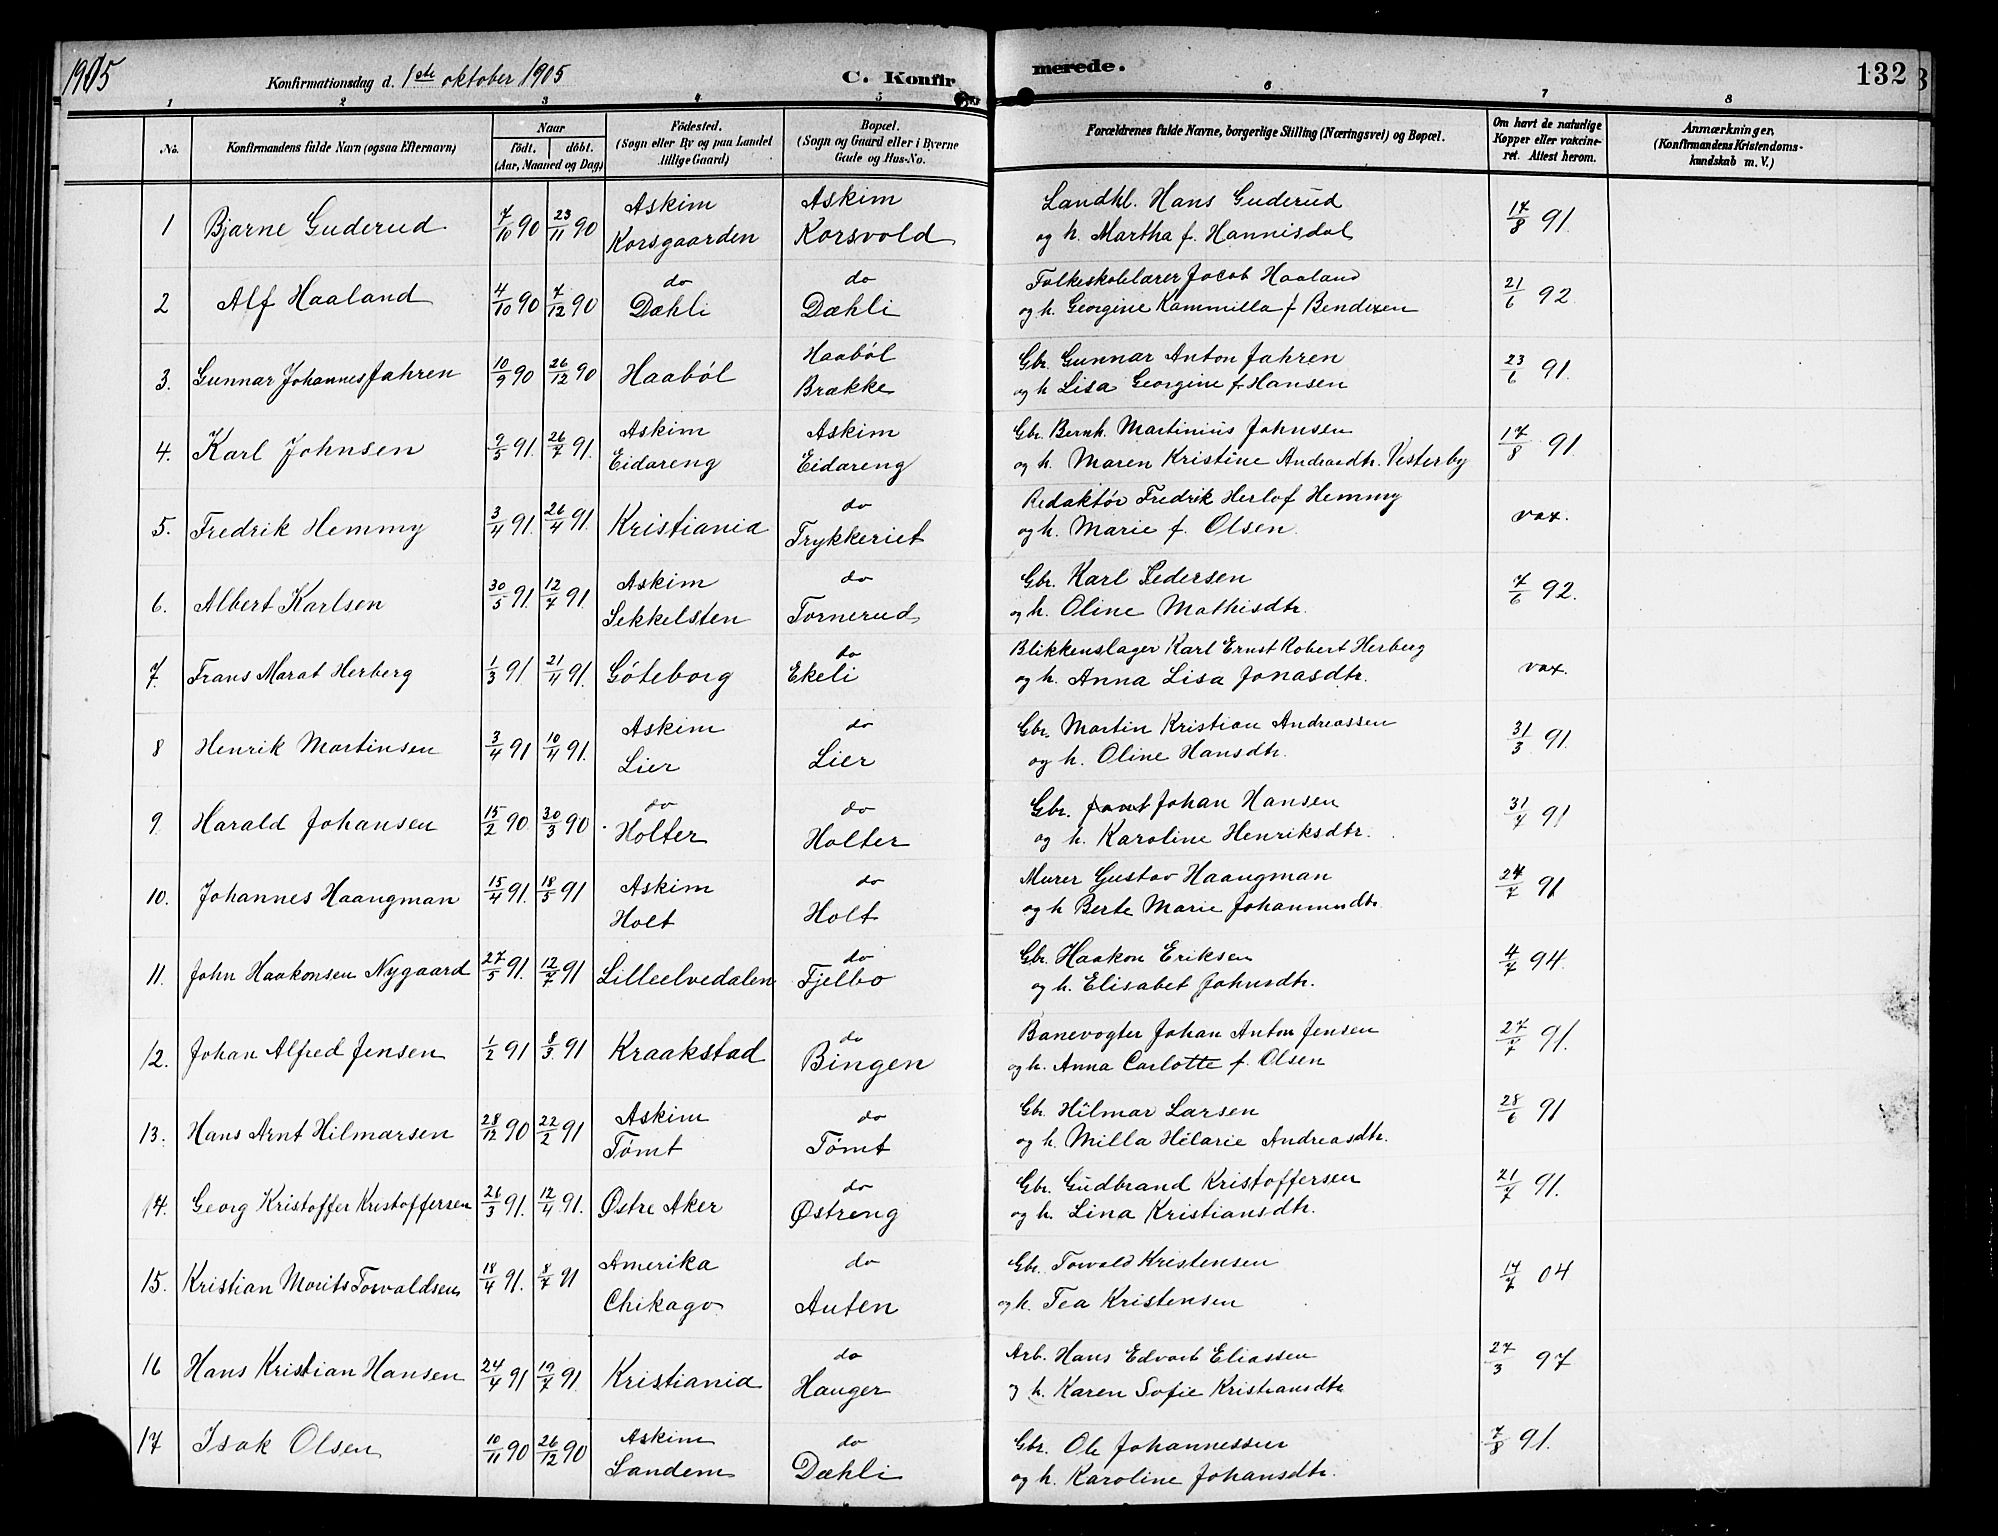 1905
Konfirmationsdag d. 1ste oktober 1905
C. Konfirmerede.
132
1 2 3 4 5 6 7 8
No.
Konfirmandens fulde Navn (ogsaa Efternavn)
Naar
födt. döbt.
(Aar, Maaned og Dag)
Födested.
(Sogn eller By og paa Landet
tillige Gaard)
Bopæl.
(Sogn og Gaard eller i Byerne
Gade og Hus-No.
Forældrenes fulde Navne, borgerlige Stilling (Næringsvei) og Bopæl.
Om havt de naturlige
Kopper eller vakcine-
ret. Attest herom.
Anmærkninger.
(Konfirmandens Kristendoms-
kundskab m. V.)
1 Bjarne Guderud 7/10 90 23/11 90 Askim Korsgaarden Askim Korsvold Landhl. Hans Guderud
og h. Martha f. Hannisdal 17/8 91.
2 Alf Haaland 4/10 90 7/12 90 do Dæhli do Dæhli Folkeskolelærer Jacob Haaland
og h. Georgine Kammilla f Bendixen 21/6 92
3. Gunnar Johannes Jahren 10/9 90 26/12 90 Haaböl Haaböl Brække Gbr. Gunnar Anton Jahren
og h Lisa Georgine f. Hansen 23/6 91.
4. Karl Johnsen 9/5 91. 26/7 91. Askim Eidareng Askim Eidareng Gbr. Bernh. Martinius Johnsen
og h. Maren Kristine Andreasdtr. Vesterby 17/8 91
5. Fredrik Hemmy 3/4 91. 26/4 91. Kristiania do Trykkeriet Redaktör Fredrik Herlof Hemmy
og h. Marie f. Olsen. vax.
6. Albert Karlsen 30/5 91. 12/7 91. Askim Sekkelsten do Tornerud Gbr. Karl Pedersen
og h. Oline Mathisdtr. 7/6 92.
7. Frans Marat Herberg 1/3 91. 21/4 91. Göteborg do Ekeli Blikkenslager Karl Ernst Robert Herberg
og h. Anna Lisa Jonasdtr. vax.
8 Henrik Martinsen 3/4 91 10/4 91. Askim Lier do Lier Gbr. Martin Kristian Andreassen
og h. Oline Hansdtr. 31/3 91.
9. Harald Johansen 15/2 90. 30/3 90 do Holter do Holter Gbr. Johan Hansen
og h. Karoline Henriksdtr. 31/7 91
10. Johannes Haangman 15/4 91. 18/5 91 Askim Holt do Holt Murer Gustav Haangman
og h Berte Marie 24/7 91
11. John Haakonsen Nygaard 27/5 91. 12/7 91 Lilleelvedalen do Fjelbo Gbr. Haakon Eriksen
og h. Elisabet Johnsdtr. 4/7 94.
12. Johan Alfred Jensen 1/2 91 8/3 91 Kraakstad do Bingen Banevogter Johan Anton Jensen
og h. Anna Carlotte f. Olsen 27/7 91.
13. Hans Arnt Hilmarsen 28/12 90 22/2 91 Askim Tømt do Tømt Gbr. Hilmar Larsen
og h. Milla Hilarie Andreasdtr. 28/6 91
14. Georg Kristoffer Kristoffersen 26/3 91. 12/4 91. Østre Aker do Østreng Gbr. Gudbrand Kristoffersen
og h. Lina Kristiansdtr. 21/7 91.
15. Kristian Morits Torvaldsen 18/4 91. 8/7 91 Amerika Chikago do Auten Gbr. Torvald Kristensen
og h. Tea Kristensen 14/7 04
16 Hans Kristian Hansen 24/4 91 19/7 91. Kristiania do Hauger Arb. Hans Edvart Eliassen
og h. Karen Sofie Kristiansdtr 27/3 97
17 Isak Olsen 10/11 90 26/12 90 Askim Sandem do Dæhli Gbr. Ole Johannessen
og h. Karoline Johansdtr. 7/8 91.